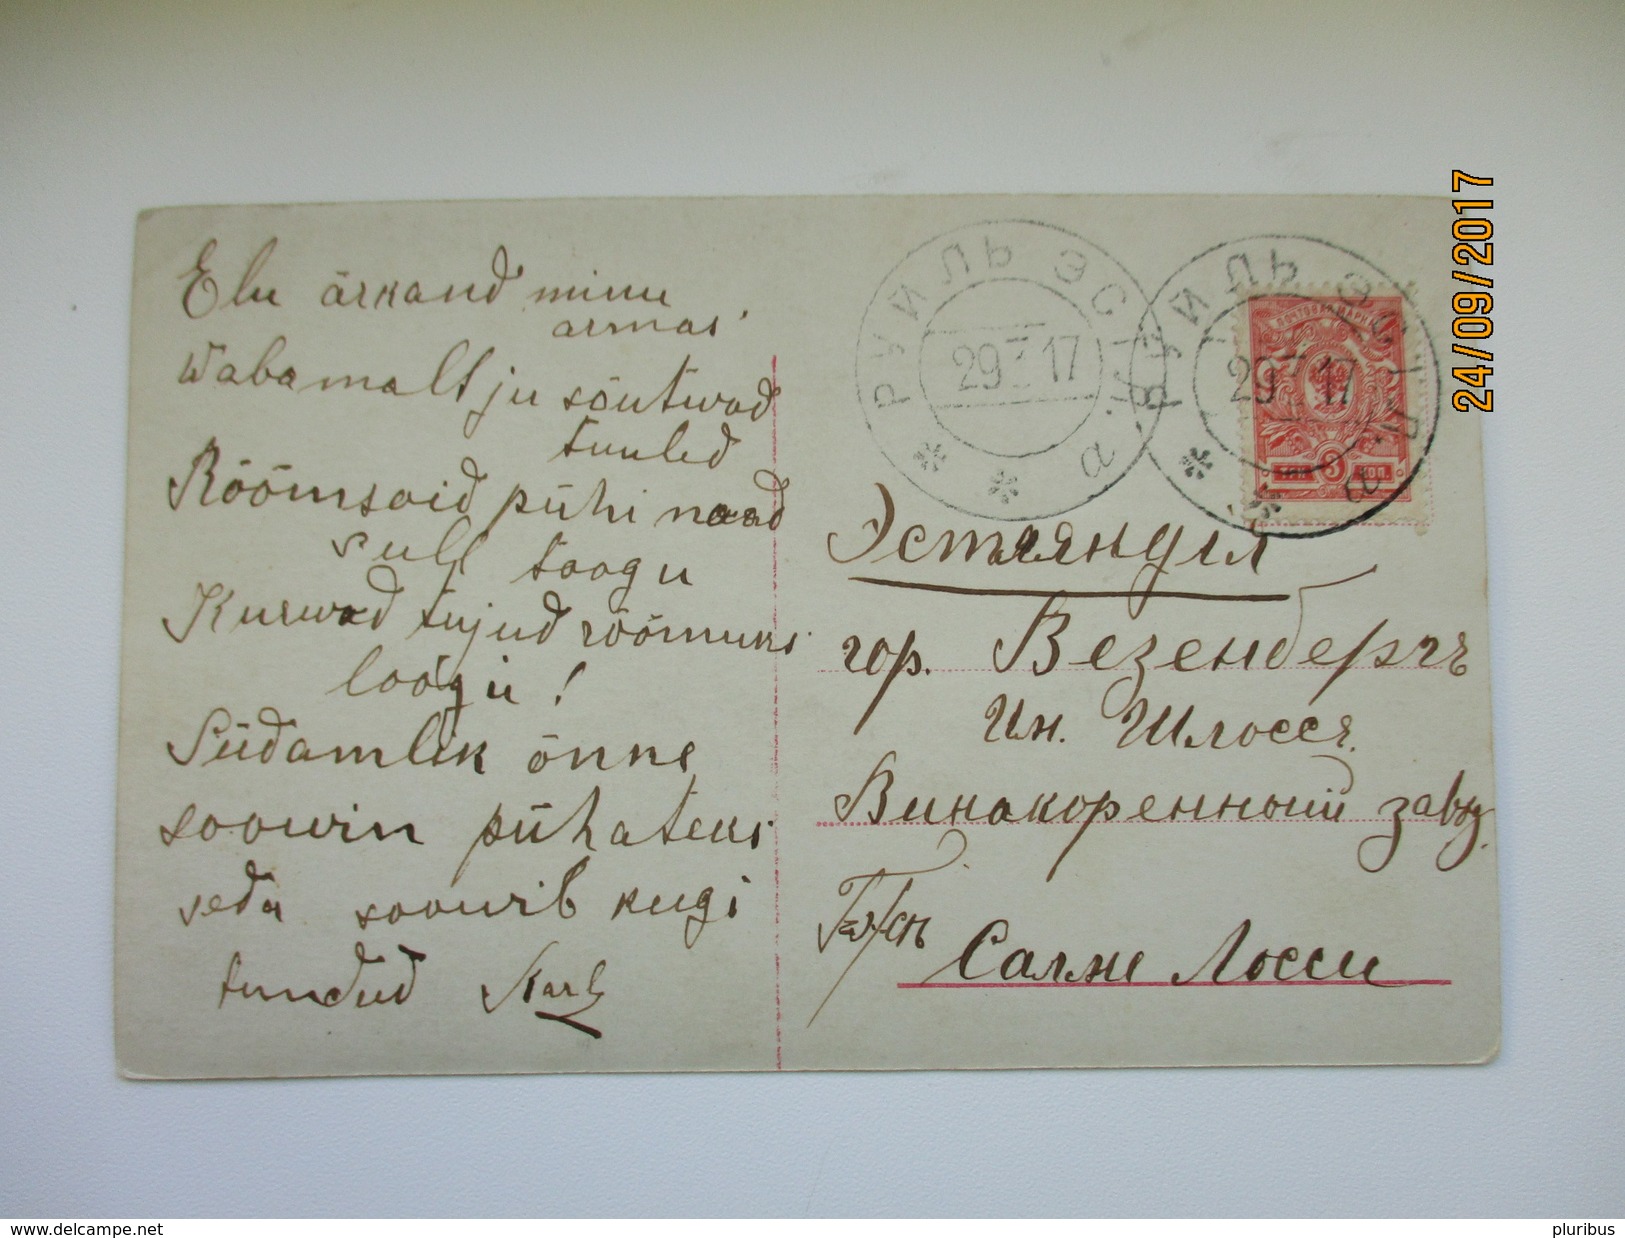 Elu ärkand minu
armas
Wabamalt ju sõutwad
tuuled
Rõõmsaid pühi naad
sull toogu
Kurwad tujud rõõmuks
loogu!
Südamlik õnne
soowin pühateks
seda soowib keigi
tundud Karl
РУИЛЬ ЭСТЛ.
29 3 17
а
РУИЛЬ ЭСТЛ.
29 3 17
а
ПОЧТОВАЯ МАРКА
КОП 3 КОП
Эстляндія
гор. Везенбергъ
Им. Шлоссъ
Винокоренный завод.
Салме Лосси
24/09/2017
delcampe.net
pluribus